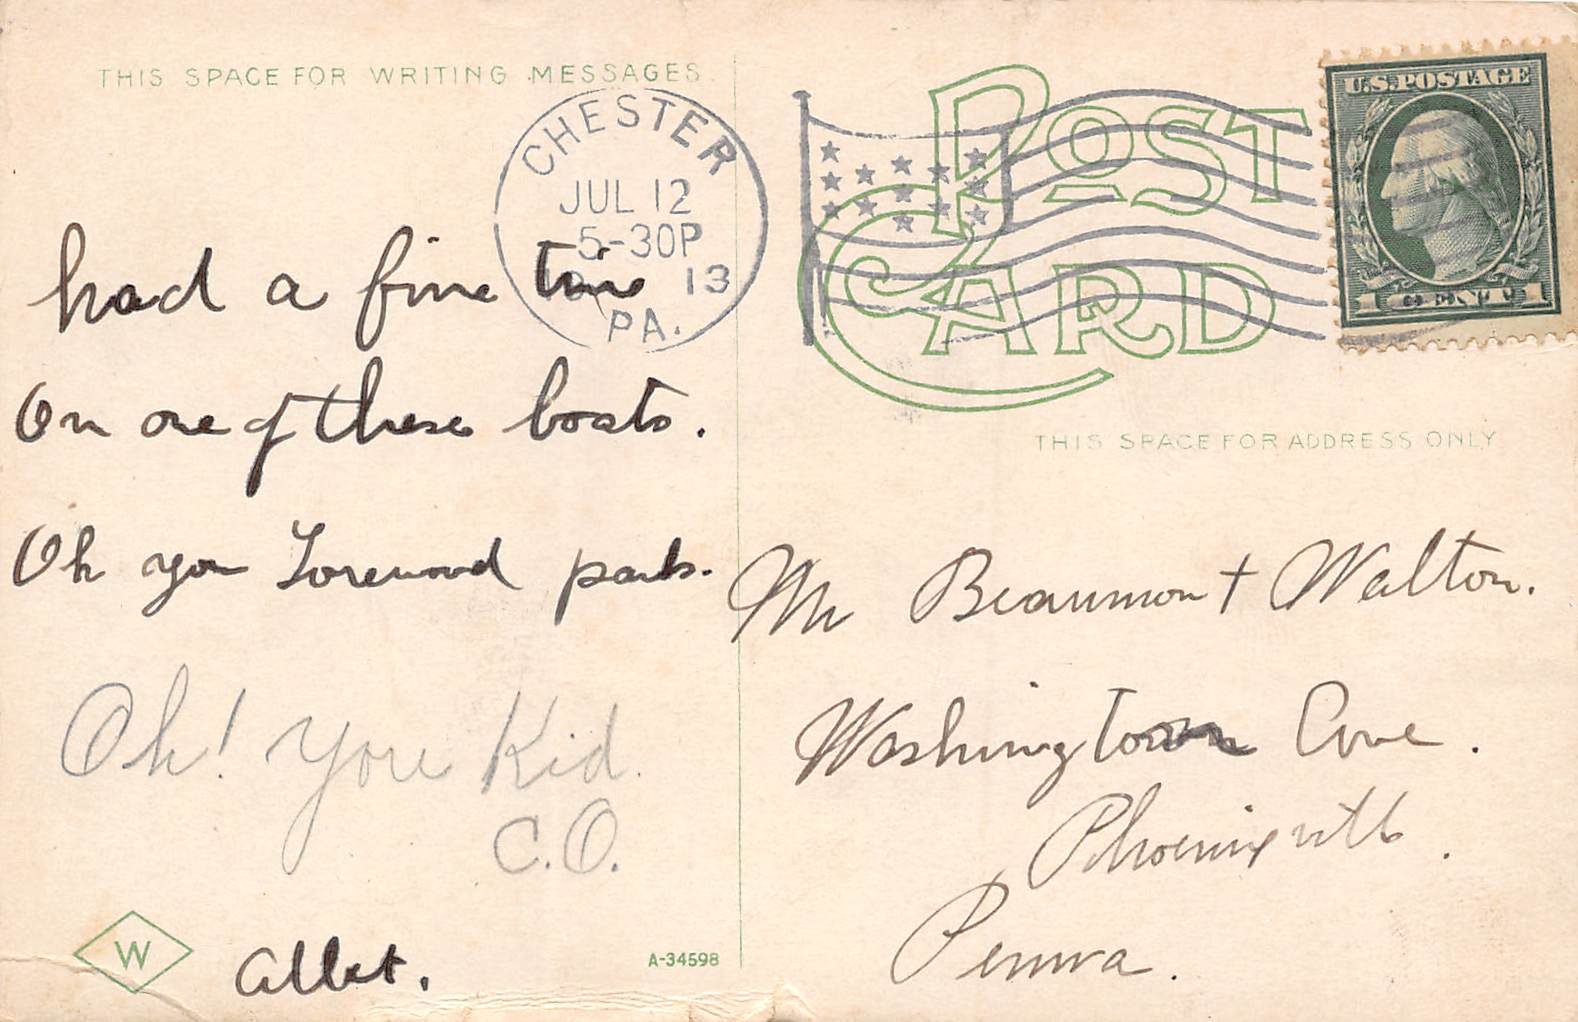 THIS SPACE FOR WRITING MESSAGES
CHESTER
JUL 12
5-30P
13
PA.
U.S. POSTAGE
1 CENT 1
POST
CARD
had a fine time
On one of these boats.
Oh you park.
Oh! you Kid.
C.O.
W
A-34598
THIS SPACE FOR ADDRESS ONLY
Mr Beaumont Walton.
Washington Ave.
Phoenixville.
Penna.